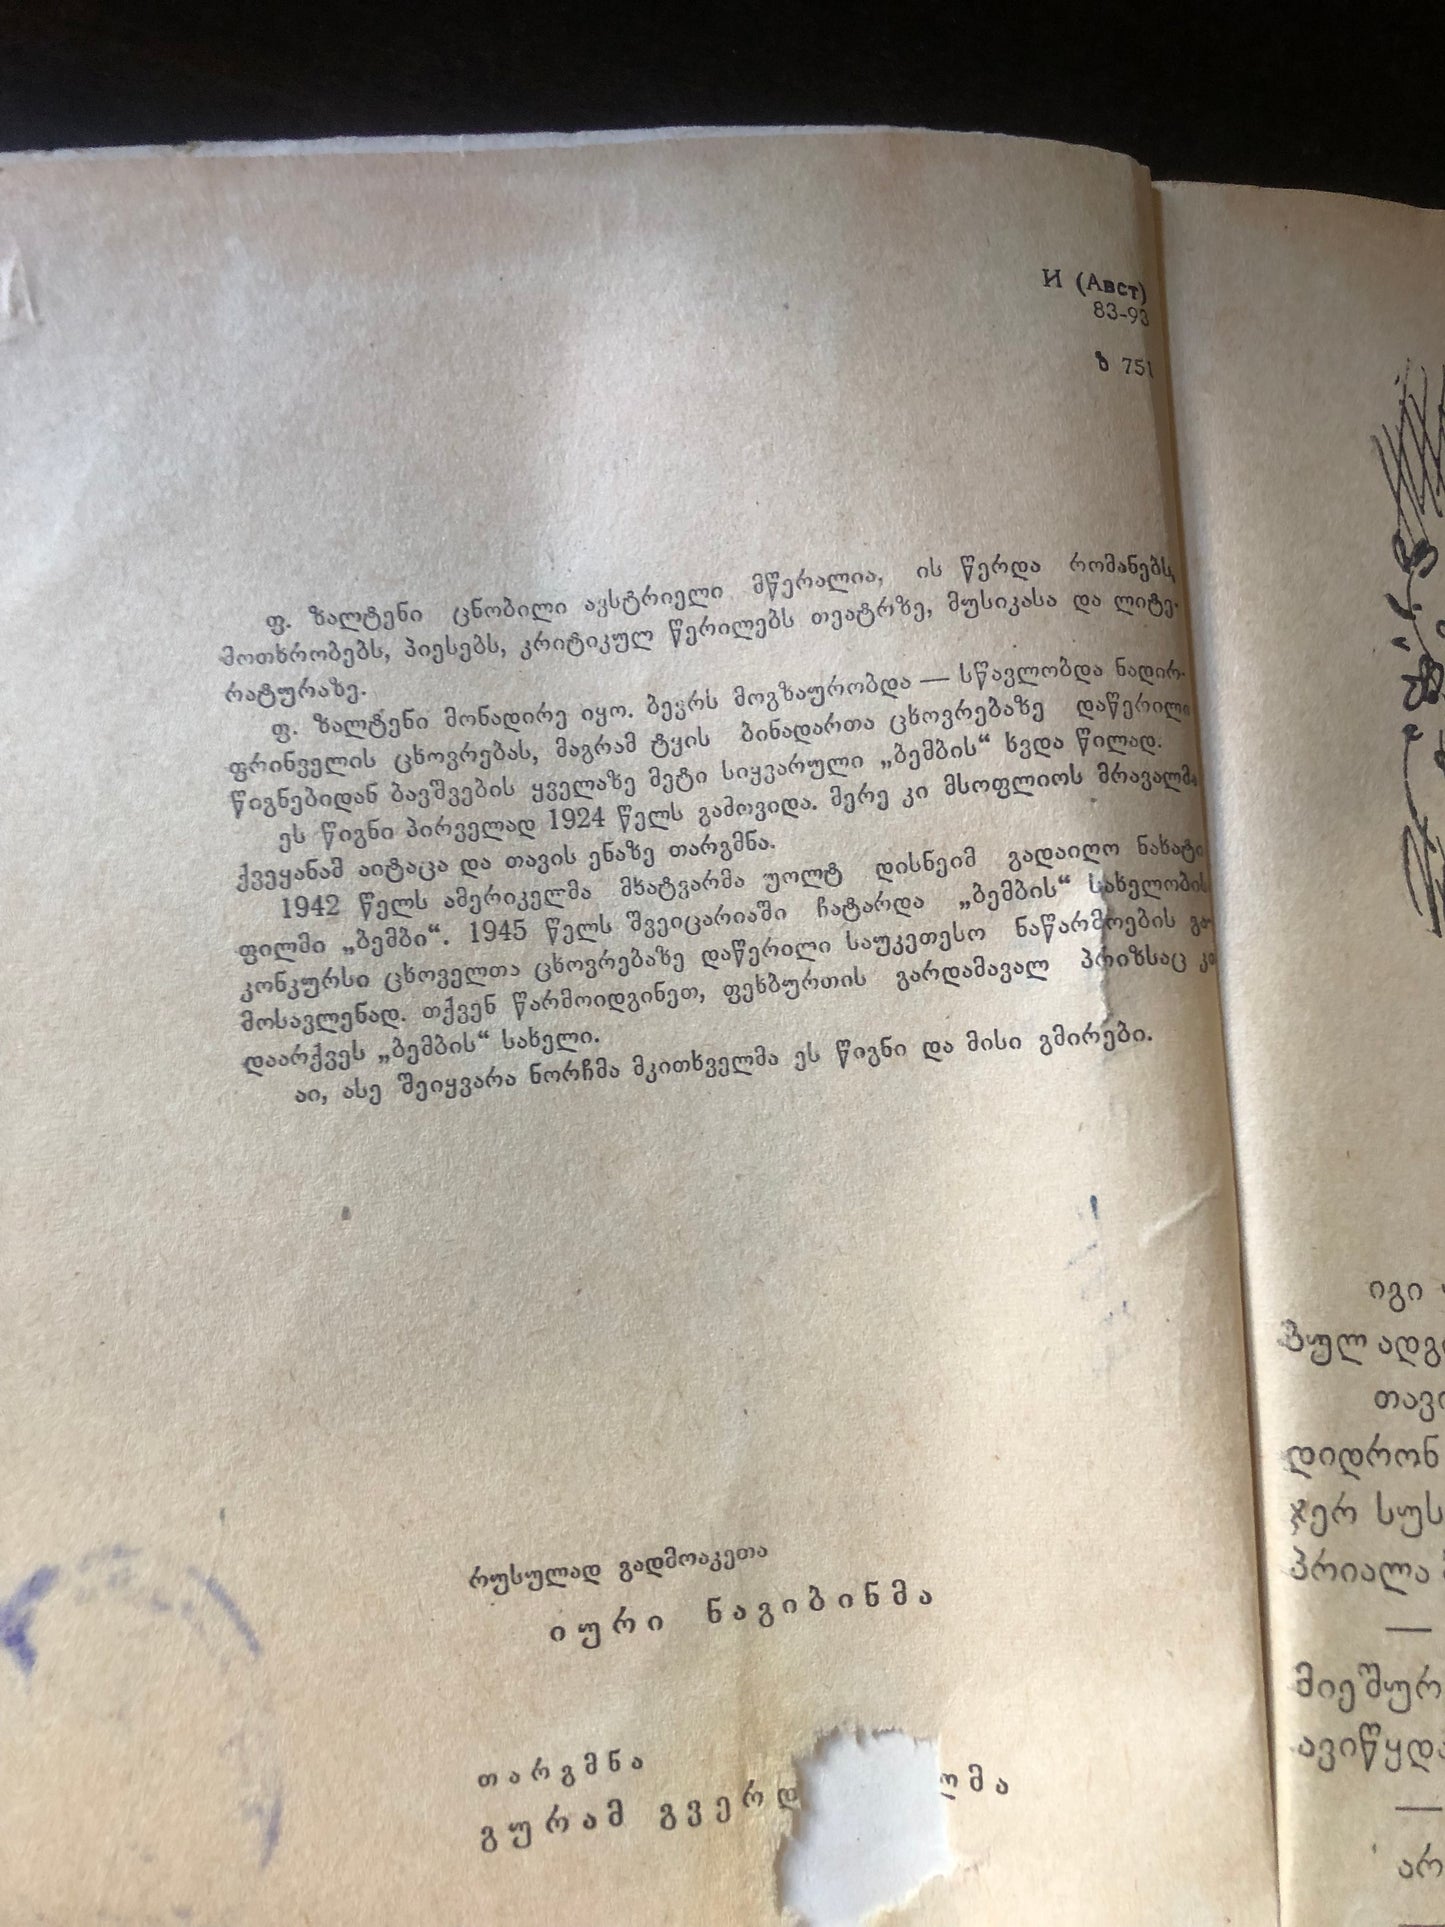 И (Авст)
83-93
ზ 751
ფ. ზალტენი ცნობილი ავსტრიელი მწერალია, ის წერდა რომანებს,
მოთხრობებს, პიესებს, კრიტიკულ წერილებს თეატრზე, მუსიკასა და ლიტე-
რატურაზე.
ფ. ზალტენი მონადირე იყო. ბევრს მოგზაურობდა — სწავლობდა ნადირ-
ფრინველის ცხოვრებას, მაგრამ ტყის ბინადართა ცხოვრებაზე დაწერილი
წიგნებიდან ბავშვების ყველაზე მეტი სიყვარული „ბემბის“ ხვდა წილად.
ეს წიგნი პირველად 1924 წელს გამოვიდა. მერე კი მსოფლიოს მრავალმა
ქვეყანამ აიტაცა და თავის ენაზე თარგმნა.
1942 წელს ამერიკელმა მხატვარმა უოლტ დისნეიმ გადაიღო ნახატი
ფილმი „ბემბი“. 1945 წელს შვეიცარიაში ჩატარდა „ბემბის“ სახელობის
კონკურსი ცხოველთა ცხოვრებაზე დაწერილი საუკეთესო ნაწარმოების გა
მოსავლენად. თქვენ წარმოიდგინეთ, ფეხბურთის გარდამავალ პრიზსაც კი
დაარქვეს „ბემბის“ სახელი.
აი, ასე შეიყვარა ნორჩმა მკითხველმა ეს წიგნი და მისი გმირები.
რუსულად გადმოაკეთა
იური ნაგიბინმა
თარგმნა
გურამ გვერდ ომა
იგი
ბულ ადგი
თავი
დიდრონ
ჯერ სუს
პრიალა
—
მიეშურ
ავიწყდა
—
არ